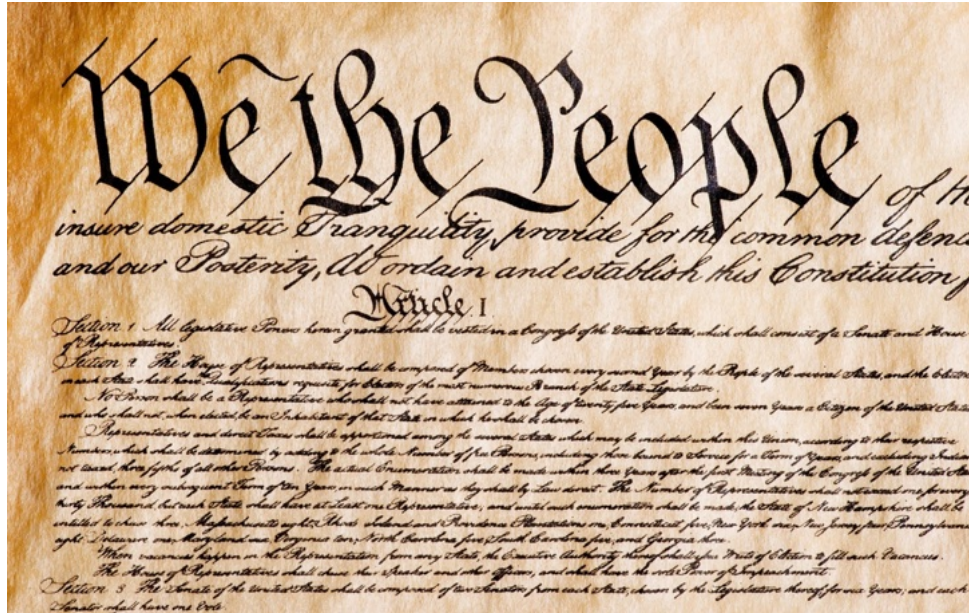 We the People of the
insure domestic Tranquility, provide for the common defenc
and our Posterity, do ordain and establish this Constitution f
Article I
Section 1 All legislative Powers herein granted shall be vested in a Congress of the United States, which shall consist of a Senate and House
of Representatives.
Section 2 The House of Representatives shall be composed of Members chosen every second Year by the People of the several States, and the Electors
in each State shall have Qualifications requisite for Electors of the most numerous Branch of the State Legislature.
No Person shall be a Representative who shall not have attained to the Age of twenty five Years, and been seven Years a Citizen of the United States
and who shall not, when elected, be an Inhabitant of that State in which he shall be chosen.
Representatives and direct Taxes shall be apportioned among the several States which may be included within this Union, according to their respective
Numbers, which shall be determined by adding to the whole Number of free Persons, including those bound to Service for a Term of Years, and excluding Indians
not taxed, three fifths of all other Persons. The actual Enumeration shall be made within three Years after the first Meeting of the Congress of the United States
and within every subsequent Term of ten Years, in such Manner as they shall by Law direct. The Number of Representatives shall not exceed one for every
thirty Thousand, but each State shall have at Least one Representative; and until such enumeration shall be made, the State of New Hampshire shall be
entitled to chuse three, Massachusetts eight, Rhode Island and Providence Plantations one, Connecticut five, New York six, New Jersey four, Pennsylvania
eight, Delaware one, Maryland six, Virginia ten, North Carolina five, South Carolina five, and Georgia three.
When vacancies happen in the Representation from any State, the Executive Authority thereof shall issue Writs of Election to fill such Vacancies.
The House of Representatives shall chuse their Speaker and other Officers; and shall have the sole Power of Impeachment.
Section 3 The Senate of the United States shall be composed of two Senators from each State, chosen by the Legislature thereof for six Years; and each
Senator shall have one Vote.